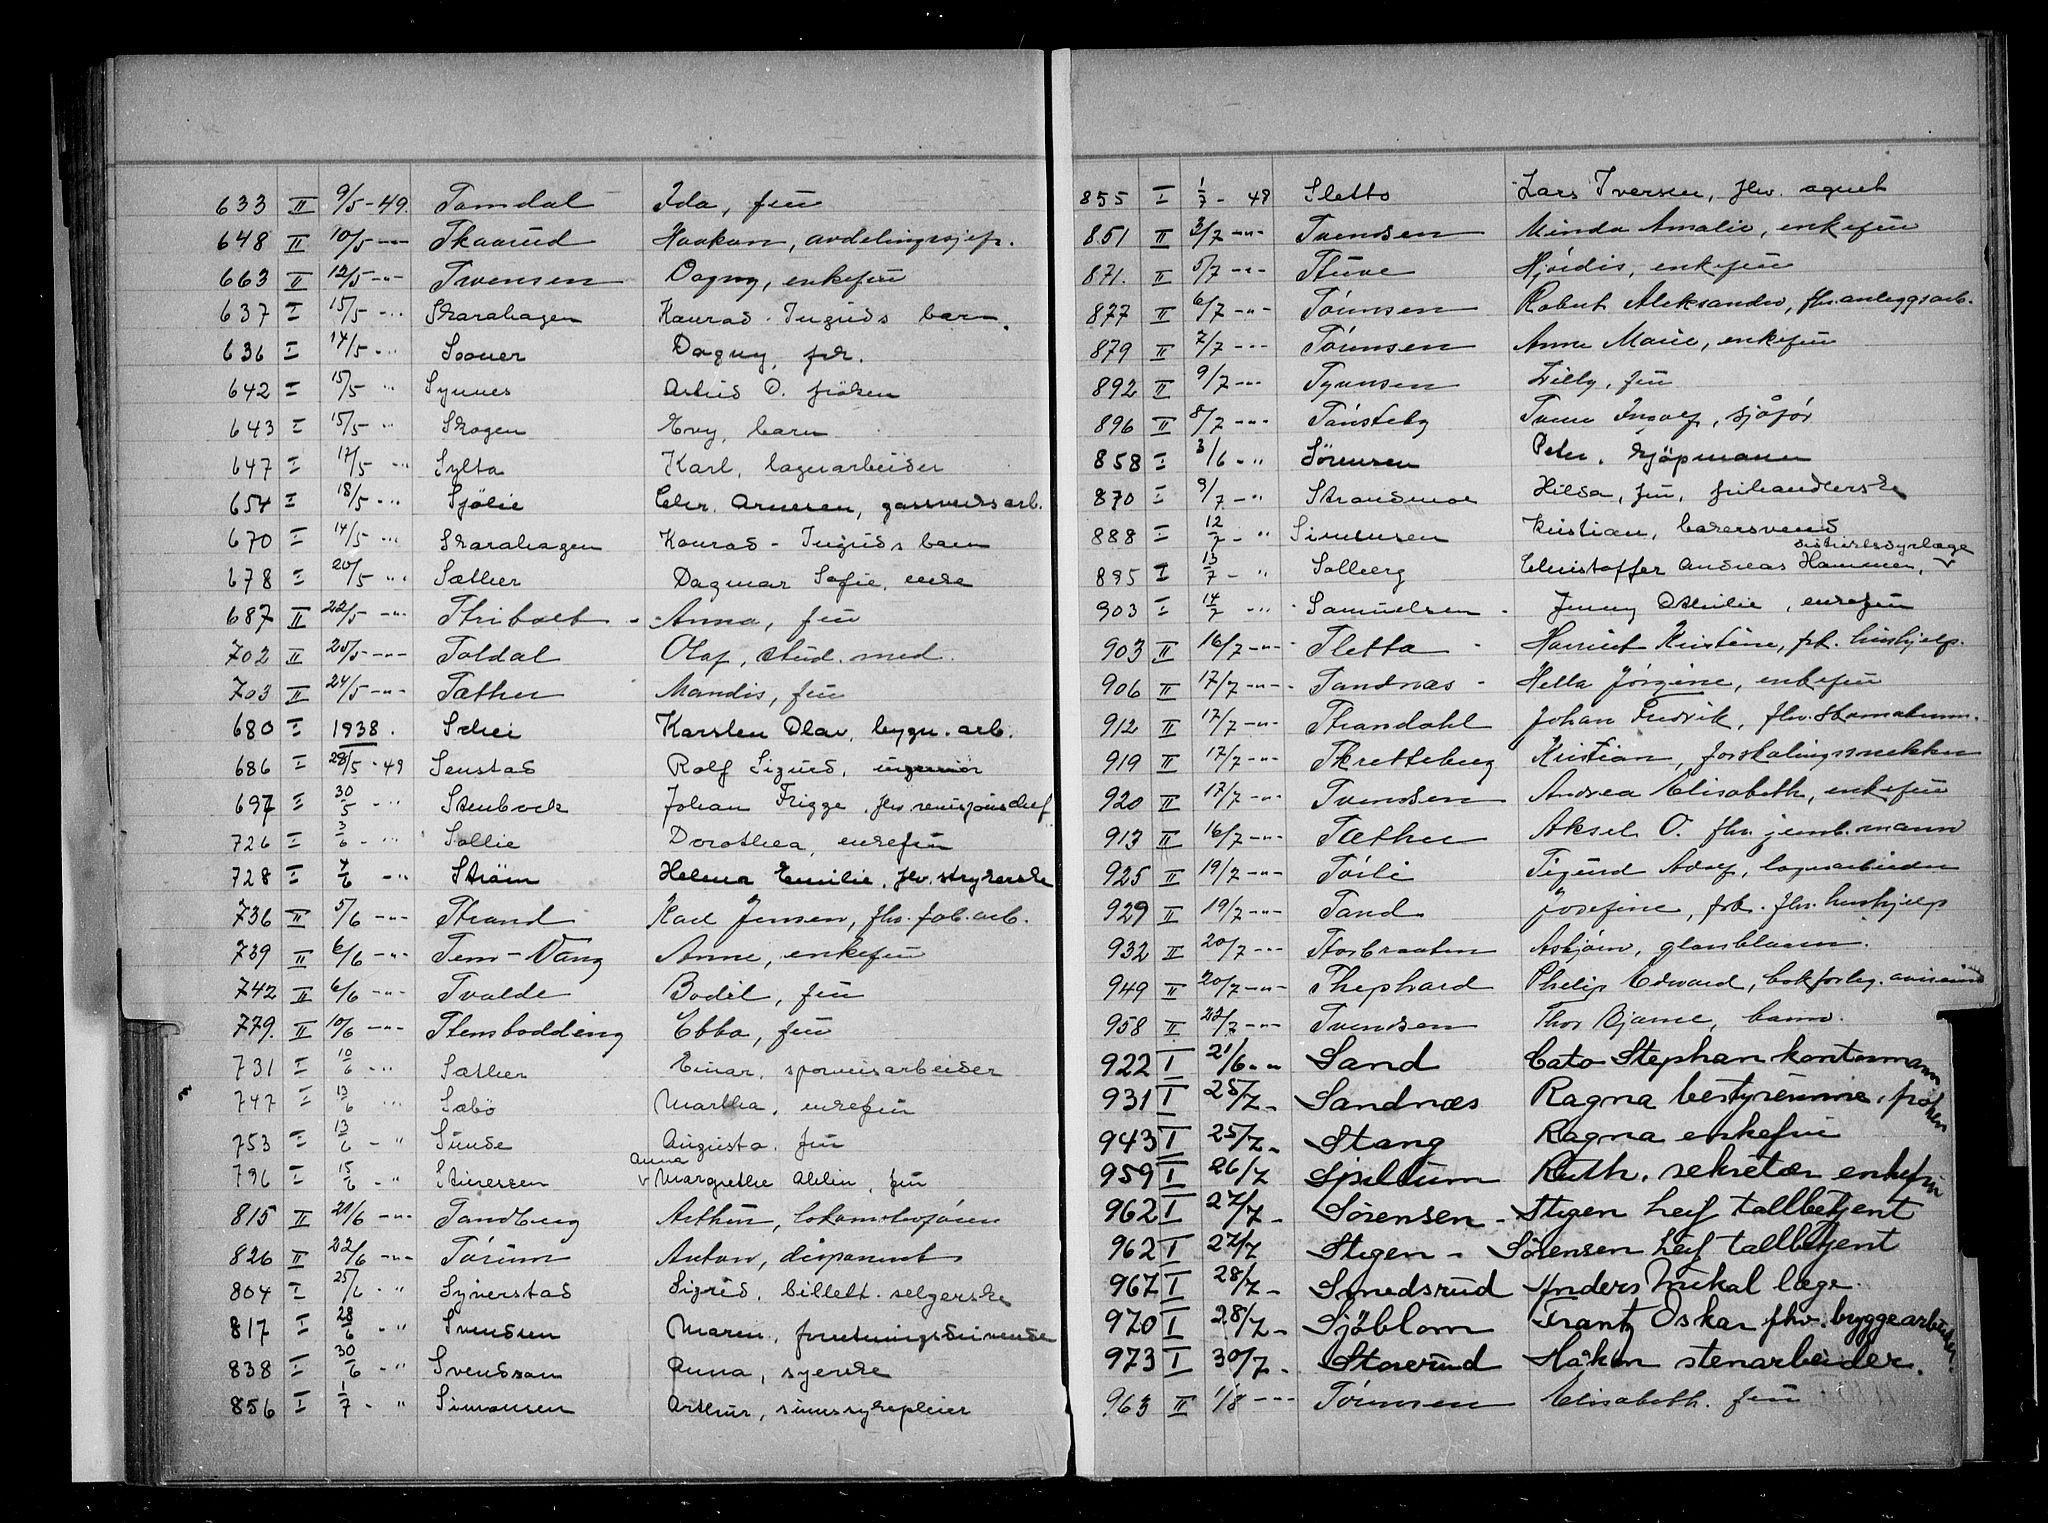 633 II 9/5-49. Samdal Ida, fru
648 II 10/5 -"- Skaarud Haakon, avdelingssjef.
663 II 12/5 -"- Svensen Dagny, enkefru
637 I 15/5 -"- Skarahagen Konrad - Ingrids barn.
636 I 14/5 -"- Dagny, frk.
642 I 15/5 " Synnes O. frøken
643 I 15/5 -" Skogen Evy, barn
647 I 17/5 -" Sylta Karl, lagerarbeider
654 I 18/5 -" Sjølie Chr. Arnesen, gassverksarb.
670 I 14/5 -" Skarahagen Konrad - Ingrids barn
678 I 20/5 " Sæther Dagmar Sofie, enke
687 II 22/5 -"- Anna, fru
702 II 25/5 -"- Soldal Olaf, stud. med.
703 II 24/5 -"- Sæther Mandis, fru
680 I 1938. Schei Karsten Olav, bygn. arb.
686 I 28/5 -49 Senstad Rolf Sigurd, ingeniør
697 I 30/5 -" Stenbock Johan Frigge, fhv. revisjonschef
726 I 3/6 -" Sollie Dorothea, enkefru
728 I 4/6 -" Strøm Helena Emilie, fhv. strykerske
736 II 5/6 -"- Strand Karl Jensen, fhv. fab. arb.
739 II 6/6 -"- Sem-Vang Anne, enkefru
742 II 6/6 -"- Svalde Bodil, fru
779. II 10/6 -"- Stensbødding Ebba, fru
731 I 10/6 -" Sæther Einar, sporveisarbeider
747 I 13/6 " Sæbø Martha, enkefru
753 I 13/6 -" Sunde Augusta, fru
796 I 15/6 -" Sturessen Anna Margrethe, fru
815 II 21/6 -"- Sandberg Arthur, lokomotivfører
826 II 22/6 -"- Sørum Anton, disponent
804 I 25/6 -" Syverstad Sigrid, billett. selgerske
817 I 28/6 -" Svendsen Maren, forretningsdrivende
838 I 30/6 -" Svendsson Anna, syerske
856 I 1/7 -" Simonsen Arthur, sinnssykepleier
855 I 1/7 - 49 Sletto Lars Iversen, fhv. agent
851 II 3/7 -"- Svendsen Minda Amalie, enkefru
871. II 5/7 -"- Stuve Hjördis, enkefru
877 II 6/7 -"- Sørensen Robert Aleksander, fhv. anleggsarb.
879 II 7/7 -"- Sørensen Anna Marie, enkefru
892 II 9/7 -"- Syversen Willy, fru
896 II 8/7 -"- Sønsteby Svein Ingolf, sjåfør
858 I 3/6 -" Sørensen Peter, kjøpmann
870 I 9/7 -" Strandmoe Hilda, fru,
888 I 12/7 -" Simensen Kristian, bakersvend
distriktsdyrlæge
895 I 13/7 -" Solberg Christoffer Andreas Hammer,
903 I 14/7 -" Samuelsen - Jenny Othilie, enkefru
903 II 16/7 -"- Sletta - Harriet Kristine, frk. hushjelp.
906 II 17/7 -"- Sandnæs - Hella Jørgine, enkefru
912 II 17/7 -"- Strandahl Johan Fredrik, fhv.
919 II 17/7 -"- Skretteberg Kristian, forskalingssnekker
920 II 17/7 -"- Svendsen Andrea Elisabeth, enkefru
913 II 16/7 -"- Sæther Aksel O. fhv. jernb. mann
925 II 19/7 -"- Sørli Sigurd Adolf, lagerarbeider
929 II 19/7 -"- Sand Josefine, frk. fhv. hushjelp
932 II 20/7 -"- Storbraaten Asbjørn, glassblåser.
949 II 20/7 -"- Shephard Philip Edward, bokforleg.
958 II 22/7 -"- Svendsen Thor Bjarne, barn.
922 I 21/6 -"- Sand Cato Stephan kontormann
931 I 25/7 - Sandnæs Ragna bestyrerinne, frøken
943 I 25/7 - Stang Ragna enkefru
959 I 26/7 Spillum Ruth, sekretær enkefru
962 I 27/7 - Sørensen - Stigen Leif tollbetjent
962 I 27/7 Stigen - Sørensen Leif tollbetjent
967 I 28/7 - Smedsrud Anders Mikal læge
970 I 28/7 - Sjöblom Frantz Oskar fhv. byggearbeider.
973 I 30/7 - Storerud Håkon stenarbeider.
963 II 1/8 -"- Sørensen Elisabeth. fru